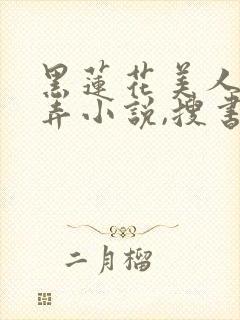 黑蓮花美人
弄小説,搜書
二月榴